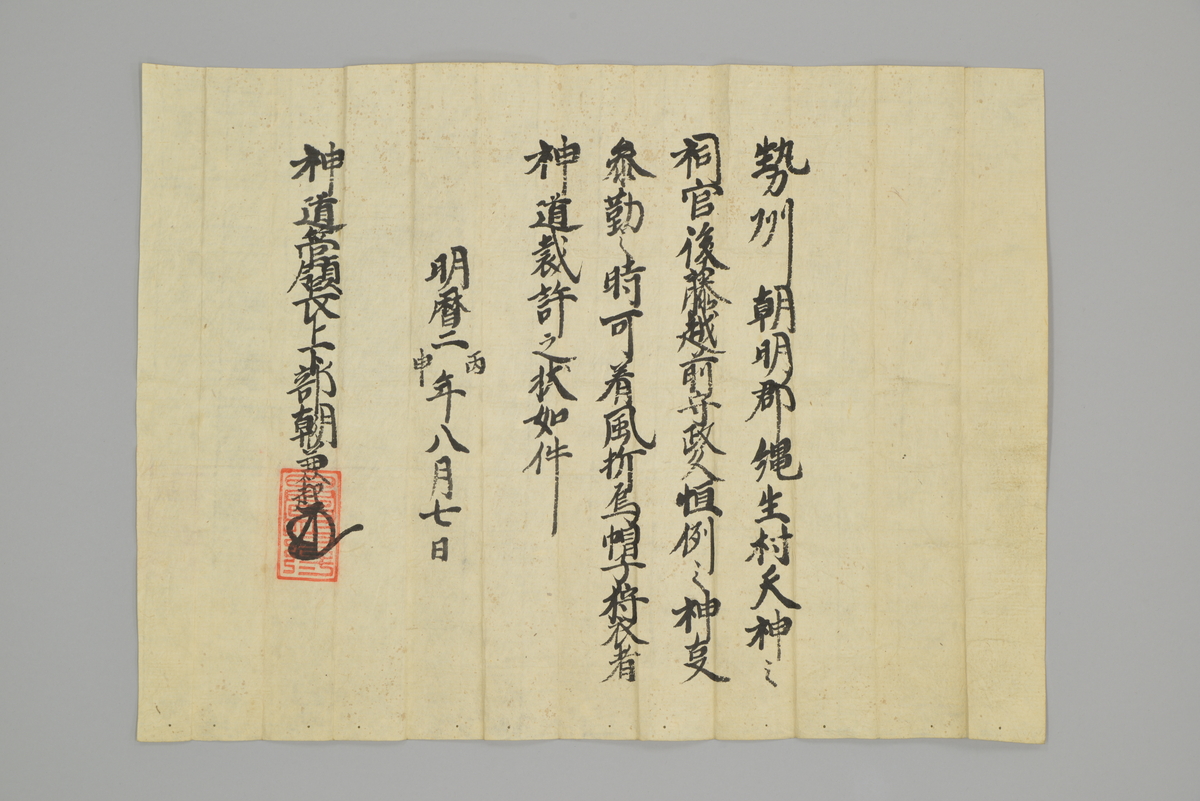 勢州 朝明郡縄生村天神之
祠官後藤越前守政久恒例之神叓
参勤之時可着風折烏帽子狩衣者
神道裁許之状如件
明暦二丙申年八月七日
神道管領長上卜部朝臣兼